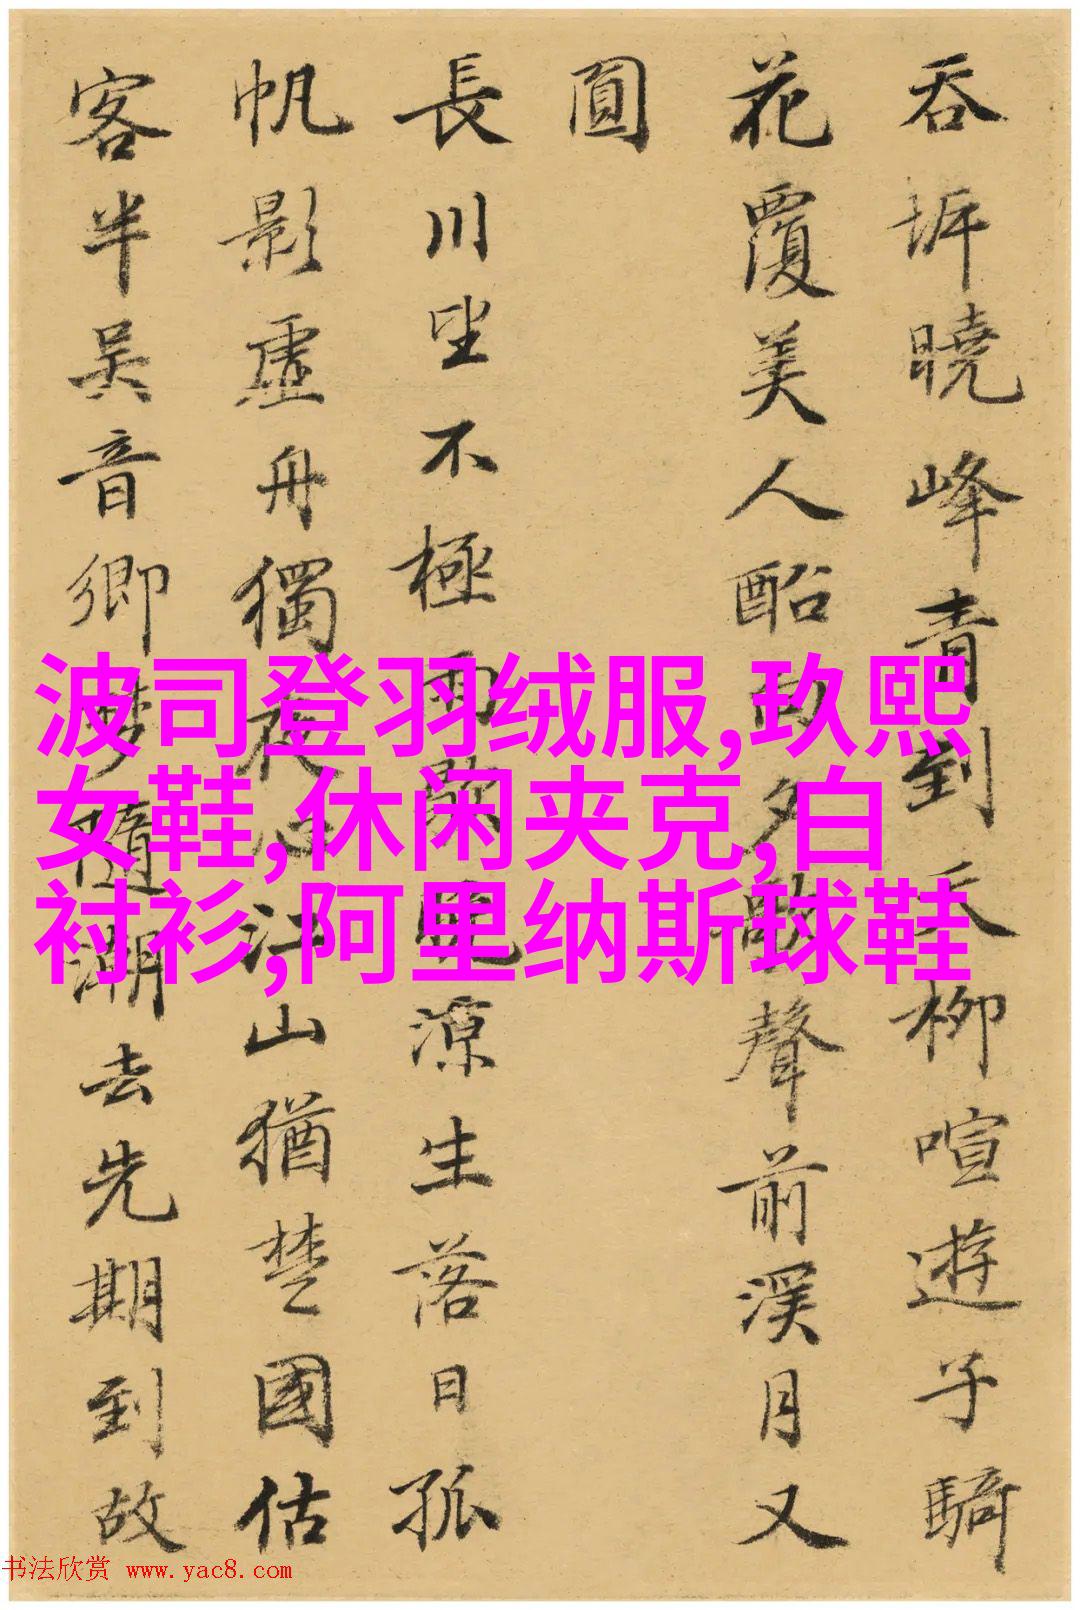 吞坼曉峰青到天柳喧遊子騎
花覆美人酩
夕
聲前溪月又
圓
長川坐不極雨歇
涼生落日孤
帆影虛舟獨夜心江山猶楚國估
客半吳音鄉夢隨潮去先期到故
波司登羽绒服,玖熙
女鞋,休闲夹克,白
衬衫,阿里纳斯球鞋
书法欣赏 www.yac8.com